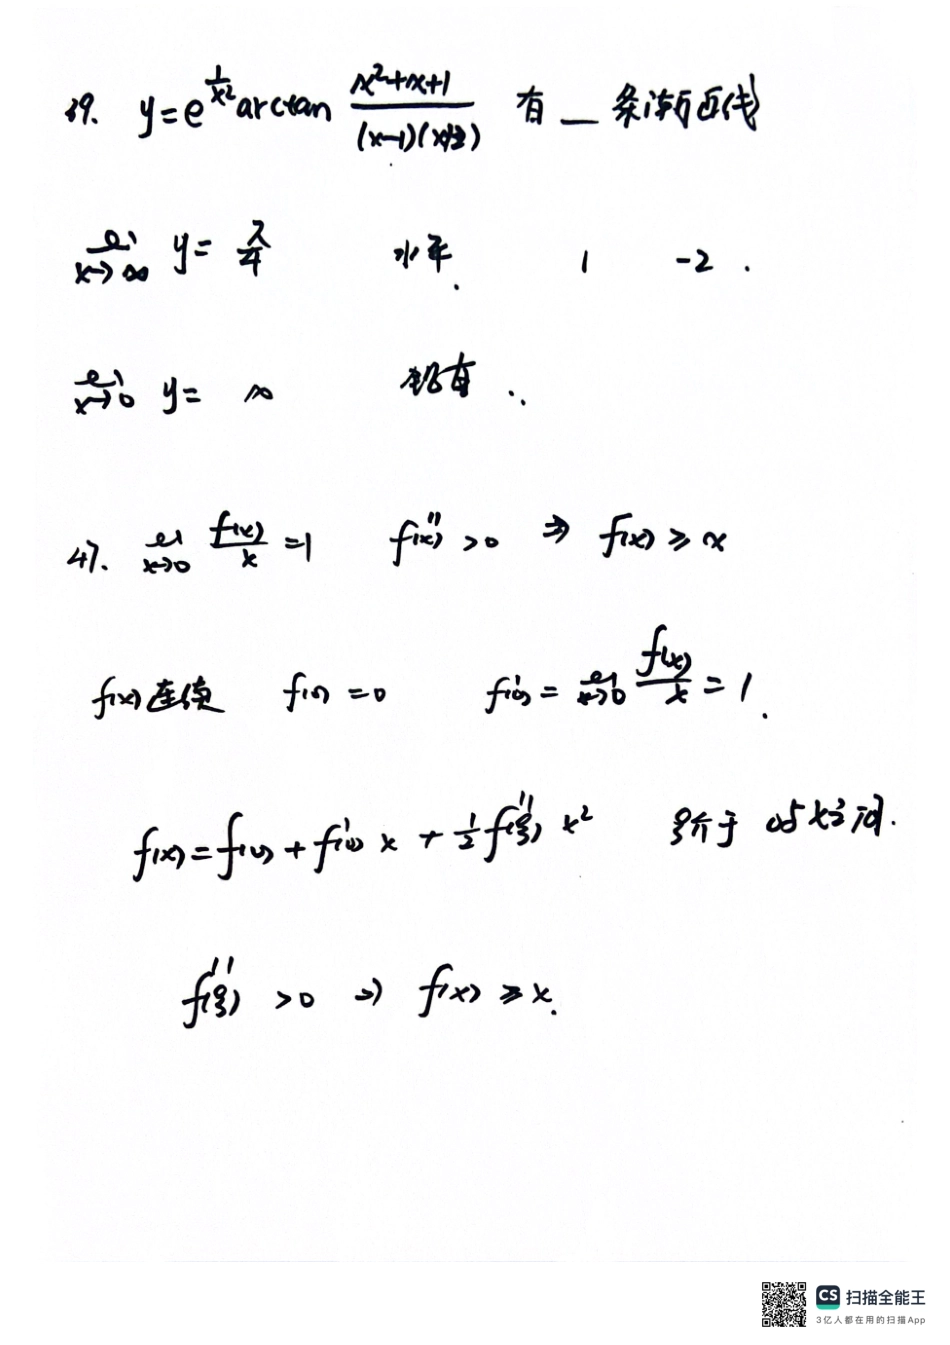 39. y=e^{1/x²} arctan (x²+x+1)/((x-1)(x+2)) 有 _ 条渐近线
lim x→∞ y= π/4 水平. 1 -2 .
lim x→0 y= ∞ 铅直 ..
47. lim x→0 f(x)/x =1 f''(x) >0 ⇒ f(x) ≥ x
f(x) 连续 f(0) =0 f'(0) = lim x→0 f(x)/x = 1 .
f(x) = f(0) + f'(0) x + 1/2 f''(ξ) x² ξ介于 0与x之间.
f''(ξ) >0 ⇒ f(x) ≥ x.
CS 扫描全能王
3亿人都在用的扫描App